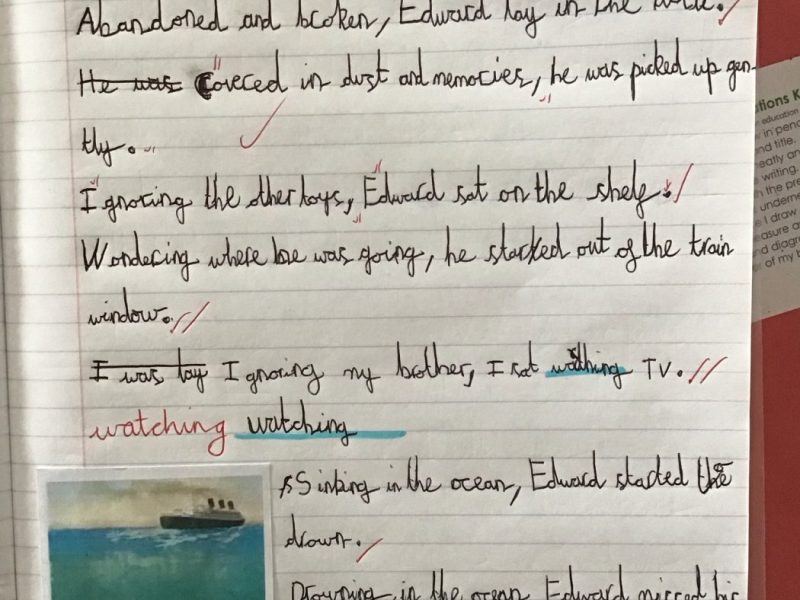 Abandoned and broken, Edward lay in the
He was Covered in dust and memories, he was picked up gen-
tly.
Ignoring the other toys, Edward sat on the shelf.
Wondering where he was going, he started out of the train
window.
I was lay Ignoring my brother, I sat TV.
watching watching
Sinking in the ocean, Edward started to
drown.
Drowning in the ocean Edward missed his
tions K
education
in penc
nd title.
eatly an
writing.
n the pre
underne
I draw
easure a
d diagr
of my b